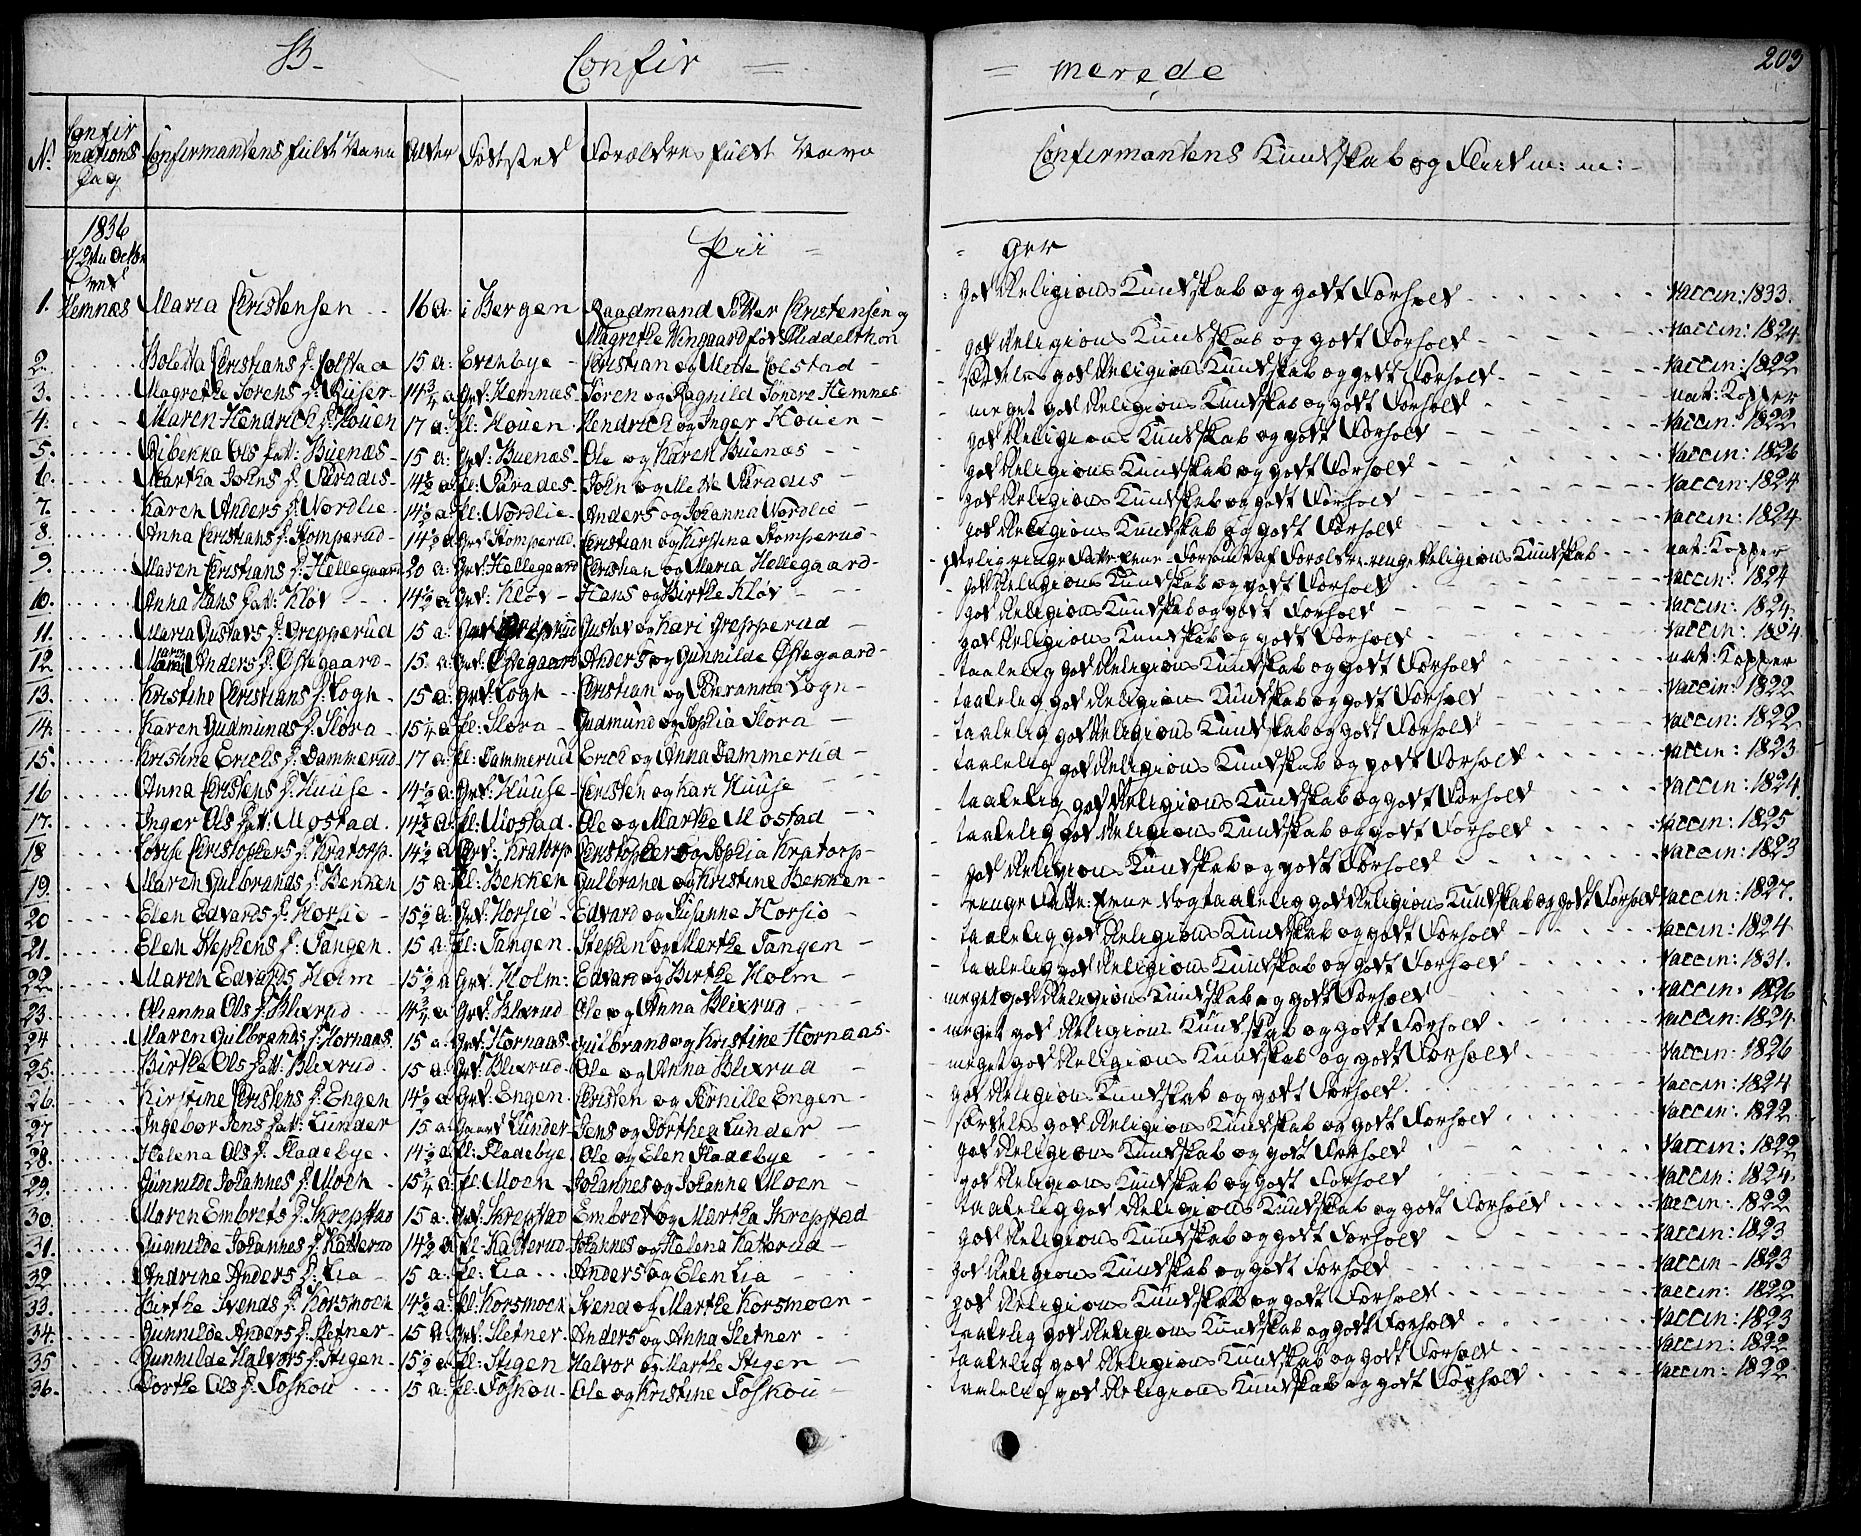 B- Confir = = merede 203
No Confirmations Dag Confirmantens fulde Navn Alder Fødsted Forældres fulde Navn Confirmantens Kundskab og Flid m: m:
1836
Pii = = ger
1. Hemnæs Maria Christensen 16 a. i Bergen Raadmand Petter Christensen og god Religions Kundskab og godt Forhold Vaccin: 1833.
Magrethe Wingaard fød Middelthon
2. Christians D. Colstad 15 a: Evenbye Christian og Mette Colstad god Religions Kundskab og godt Forhold Vaccin: 1824
3. Magrethe Sørens D. Riiser 14¾ a Grd: Hemnæs Søren og Ragnild Søndre Hemnes særdeles god Religions Kundskab og godt Forhold Vaccin: 1822
4. Maren Hendrich D. Houen 17 a: Pl: Houen Hendrich og Inger Houen meget god Religions Kundskab og godt Forhold nat: Kopper
5. Ribekka Ols Dat: Buenæs 15 a: Grd: Buenæs Ole og Karen Buenæs god Religions Kundskab og godt Forhold Vaccin: 1822
6. Martha Johns D. Paradis 14½ a Pl: Parades John og Mette Paradis god Religions Kundskab og godt Forhold Vaccin: 1826
7. Karen Anders D. Nordlie 14½ a: Pl: Nordlie Anders og Johanna Nordlie god Religions Kundskab og godt Forhold Vaccin: 1824
8. Anna Christians D. Stomperud 14½ a Grd: Stomperud Christian og Kirstina Stomperud god Religions Kundskab og godt Forhold Vaccin: 1824
9. Maren Christians D. Hellegaard 20 a: Grd: Hellegaard Christian og Maria Hellegaard ringe Religions Kundskab nat: Kopper
10. Anna Hans Dat: Kløv 14½ a: Grd: Kløv Hans og Birthe Kløv god Religions Kundskab og godt Forhold Vaccin: 1824
11. Maria Gustavs D. Grepperud 15 a: Grd: Gustav og Kari Grepperud god Religions Kundskab og godt Forhold Vaccin: 1824
12. Maren Anders D. Østegaard 15 a: Grd: Østegaard Anders og Gunnilde Østegaard god Religions Kundskab og godt Forhold Vaccin: 1824
13. Kristine Christians D. Sogn 15 a: Grd: Sogn Christian og Sogn taalelig god Religions Kundskab og godt Forhold nat: Kopper
14. Karen Gudmunds D. Slora 15¼ a Pl: Slora Gudmund og Sophia Slora taalelig god Religions Kundskab og godt Forhold Vaccin: 1822
15. Kristine Erichs D. Dammerud 17 a: Pl: Dammerud Erich og Anna Dammerud taalelig god Religions Kundskab og godt Forhold Vaccin: 1822
16 Anna Christens D. Huuse 14½ a: Grd: Huuse Christen og Kari Huuse taalelig god Religions Kundskab og godt Forhold Vaccin: 1823
17. Inger Ols Dat: Mostad 14½ a. Pl: Mostad Ole og Marthe Mostad taalelig god Religions Kundskab og godt Forhold Vaccin: 1824.
18 Lovise Christophers D. Kratorp 14½ a Grd: Kratorp Christopher og Sophia Kratorp taalelig god Religions Kundskab og godt Forhold Vaccin: 1825
19. Maren Gulbrands D. Bekken 15 a: Pl: Bekken Gulbrand og Kristine Bekken god Religions Kundskab og godt Forhold Vaccin: 1823
20 Elen Edvards D. Horsie 15½ a: Grd: Horsie Edvard og Susanne Horsie ringe Fatte: Evne og taalelig god Religions Kundskab og godt Forhold Vaccin: 1827.
21. Elen Stephens D. Tangen 15 a: Pl: Tangen Stephen og Marthe Tangen taalelig god Religions Kundskab og godt Forhold Vaccin: 1824
22 Maren Edvards Holm 15½ a Grd: Holm: Edvard og Birthe Holm taalelig god Religions Kundskab og godt Forhold Vaccin: 1831.
23. Olianna Ols D. Blixrud 14¾ a Grd: Blixrud Ole og Anna Blixrud meget god Religions Kundskab og godt Forhold Vaccin: 1826
24 Maren Gulbrands D. Hornaas 15 a: Grd: Hornaas Gulbrand og Kristine Hornaas meget god Religions Kundskab og godt Forhold Vaccin: 1824
25. Birthe Ols Dat: Blixrud 15 a: Grd: Blixrud Ole og Anna Blixrud meget god Religions Kundskab og godt Forhold Vaccin: 1826
26. Kirstine Christens D. Engen 14½ a Grd: Engen Christen og Pernille Engen god Religions Kundskab og godt Forhold Vaccin: 1824
27 Ingebor Jens Dat: Lunder 15 a: Gaard Lunder Jens og Dorthea Lunder særdeles god Religions Kundskab og godt Forhold Vaccin: 1822
28. Helena Ols D. Fladebye 14½ a. Pl: Fladebye Ole og Elen Fladebye god Religions Kundskab og godt Forhold Vaccin: 1822
29. Gunnilde Johannes D. Moen 15¾ a: Pl: Moen Johannes og Johanne Moen god Religions Kundskab og godt Forhold Vaccin: 1824
30. Maren Embrets D. Skrepstad 15 a: Grd: Skrepstad Embret og Martha Skrepstad taalelig god Religions Kundskab og godt Forhold Vaccin: 1822
31. Gunnilde Johannes D. Katterud 14½ a Pl: Katterud Johannes og Helena Katterud god Religions Kundskab og godt Forhold Vaccin: 1823
32 Andrine Anders D. Lia 15 a: Pl: Lia Anders og Elen Lia god Religions Kundskab og godt Forhold Vaccin 1823
33. Birthe Svends D. Korsmoen 14½ a: Pl: Korsmoen Svend og Marthe Korsmoen god Religions Kundskab og godt Forhold Vaccin: 1822
34. Gunnilde Anders D. Sletner 15 a: Grd: Sletner Anders og Anna Sletner taalelig god Religions Kundskab og godt Forhold Vaccin: 1823
35 Gunnilde Halvors D. Stigen 15½ a: Pl: Stigen Halvor og Marthe Stigen taalelig god Religions Kundskab og godt Forhold Vaccin: 1822
36. Dorthe Ols D. Foskou 15 a: Pl: Foskou Ole og Kristine Foskou taalelig god Religions Kundskab og godt Forhold Vaccin: 1822